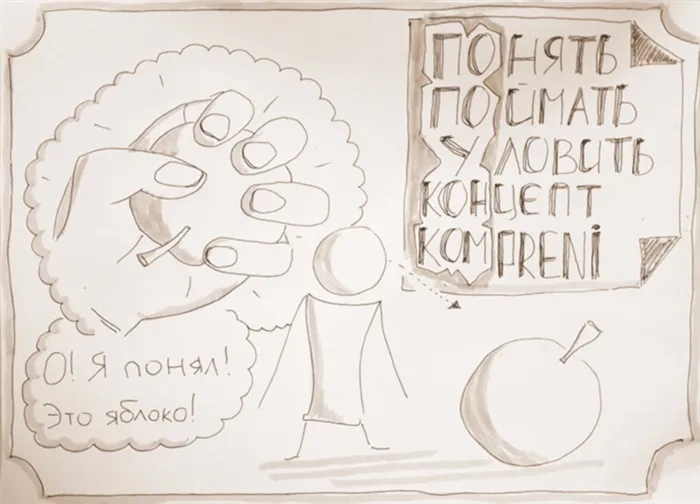 ПОНЯТЬ
ПОЙМАТЬ
УЛОВИТЬ
КОНЦЕПТ
KOMPRENI
О! Я понял!
Это яблоко!